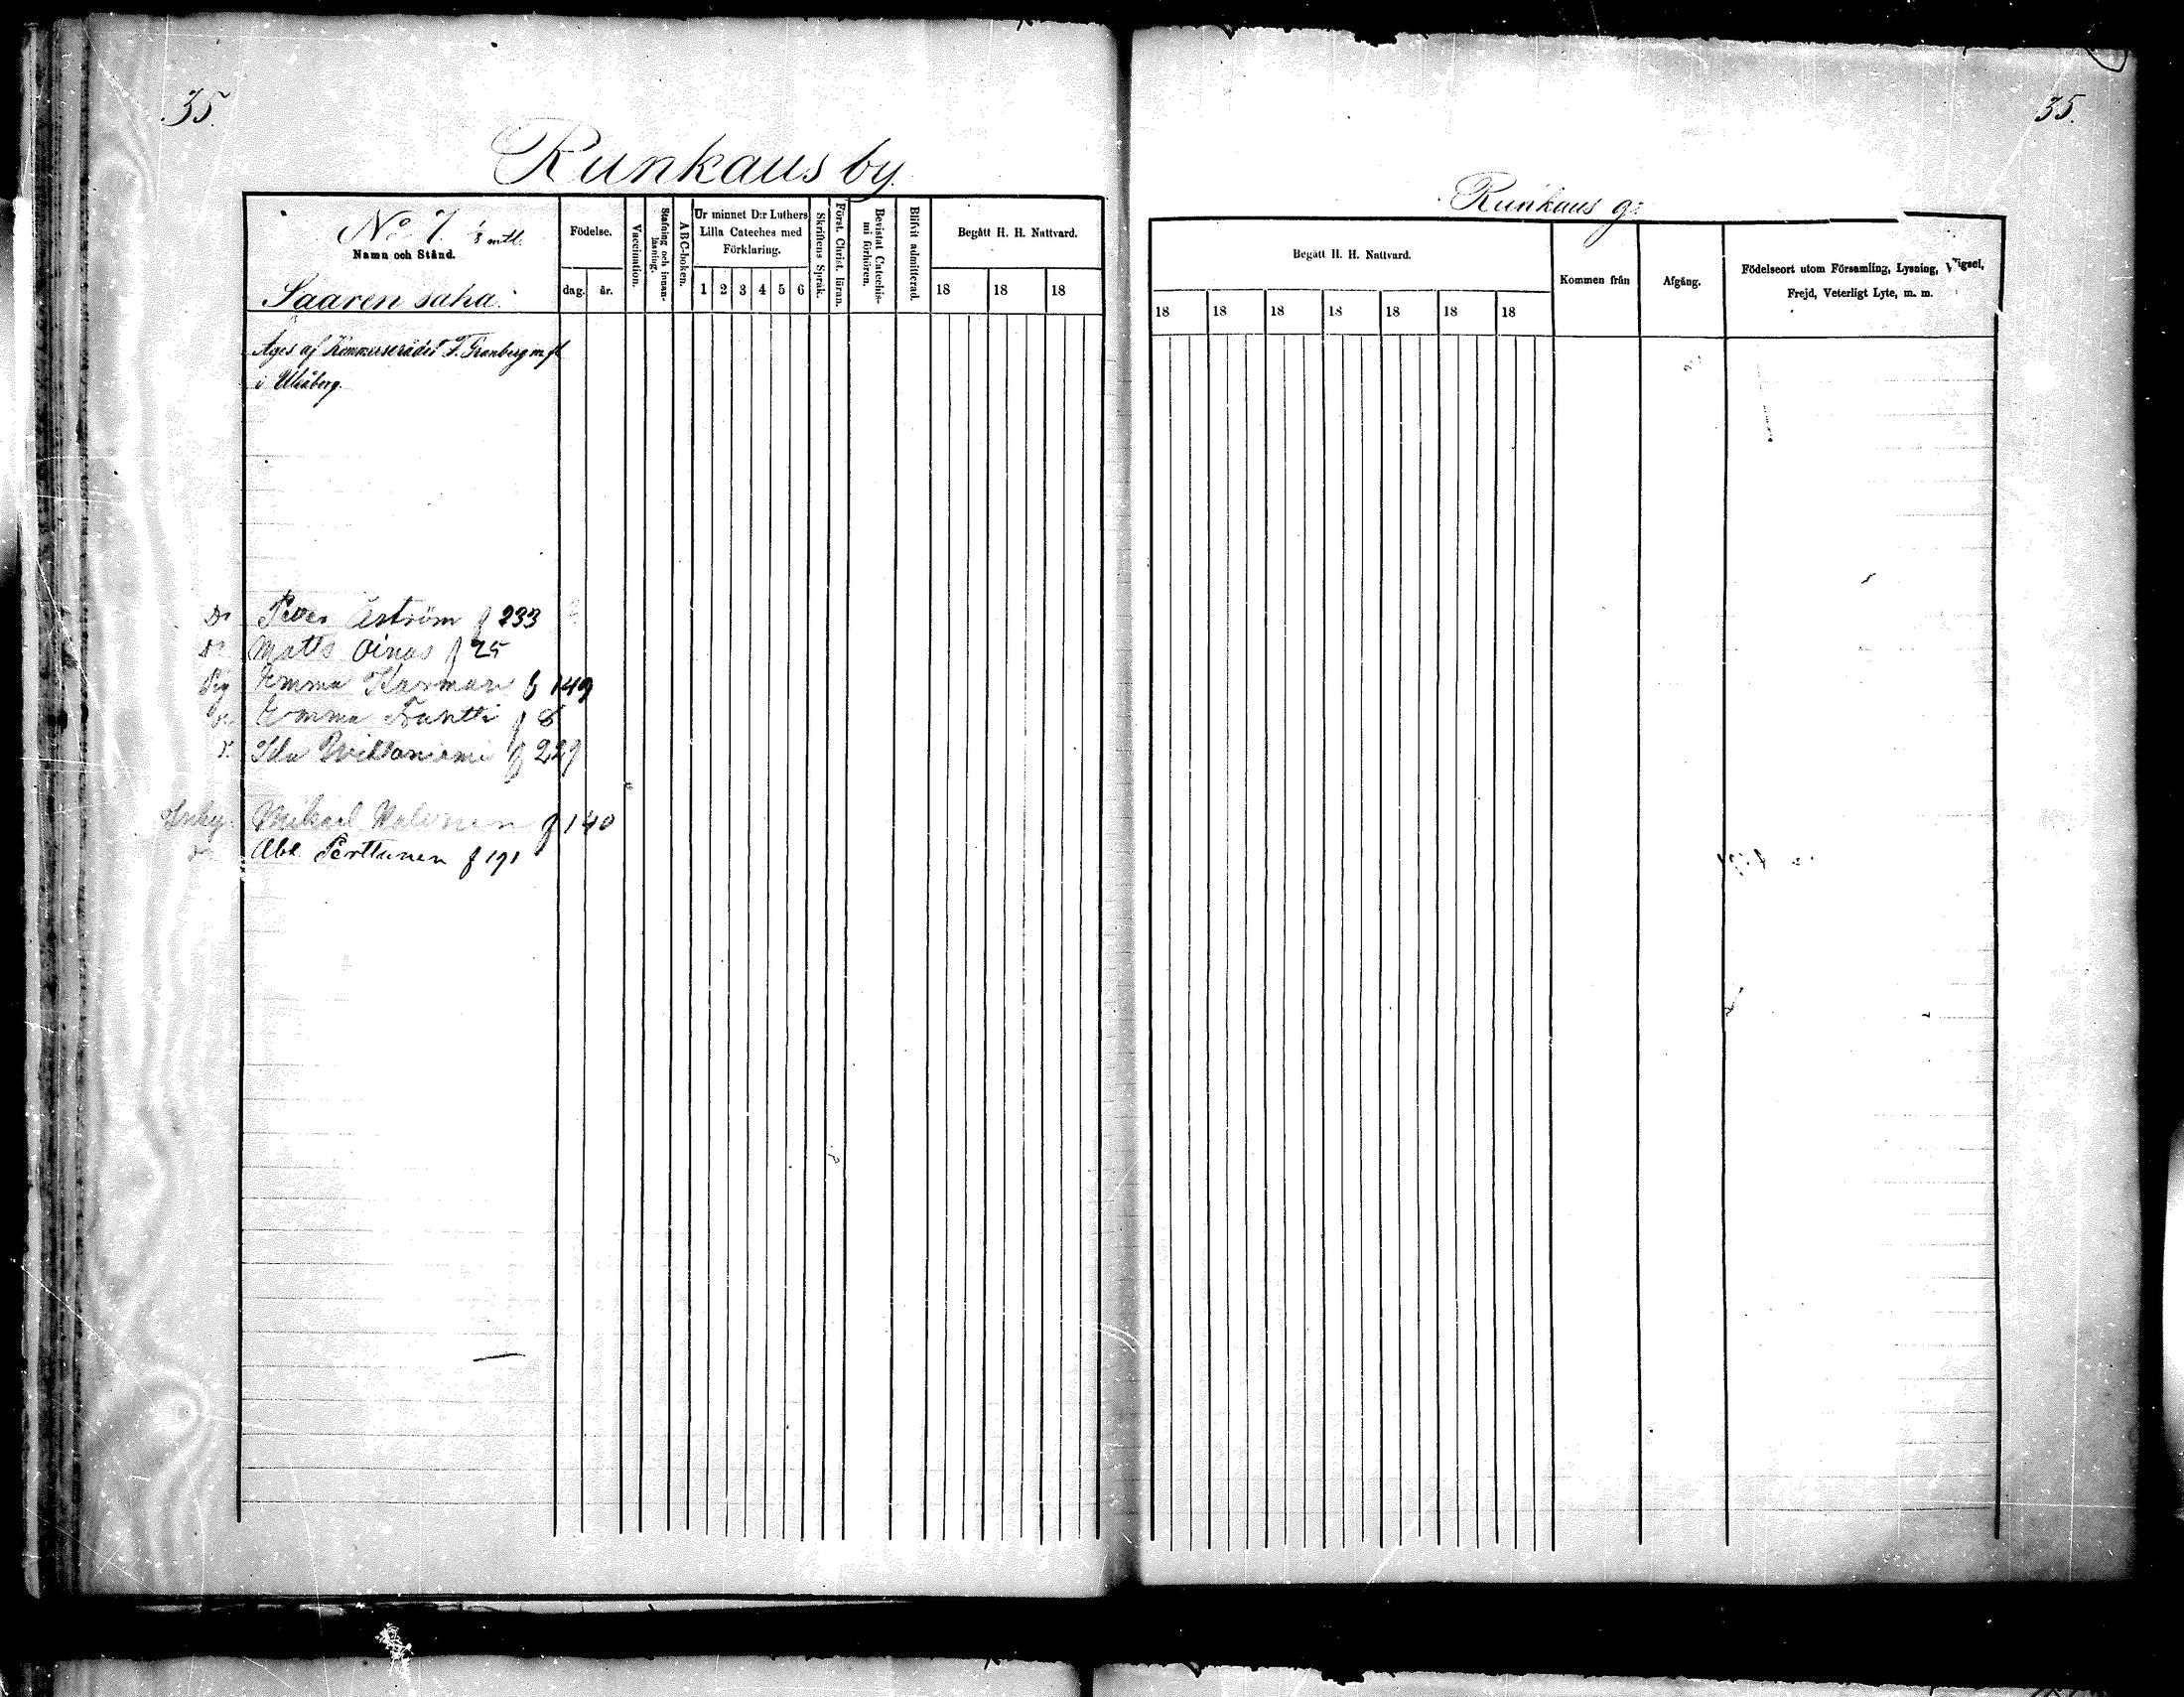 35.
Runkaus by.
No 7. 1/8 mtl.
Namn och Stånd.
Saaren saha.
Födelse.
dag. år.
Vaccination.
Stafning och innan-
läsning.
ABC-boken.
Ur minnet D:r Luthers
Lilla Cateches med
Förklaring.
1 2 3 4 5 6
Skriftens Språk.
Först. Christ. läran.
Bevistat Catechis-
mi förhören.
Blifvit admitterad.
Begått H. H. Nattvard.
18 18 18
Äges af Kommerserådet F. Granberg m fl
i Uleåborg.
Dr Peter Åström f 233
Dr Matts Oinas f 25
Pig Emma f 149
Emma f 8
Ida f 229
Mikael f 140
Abel Perttunen f 191
35.
Runkaus g:
Begått H. H. Nattvard.
18 18 18 18 18 18 18
Kommen från
Afgång.
Födelseort utom Församling, Lysning, Vigsel,
Frejd, Veterligt Lyte, m. m.